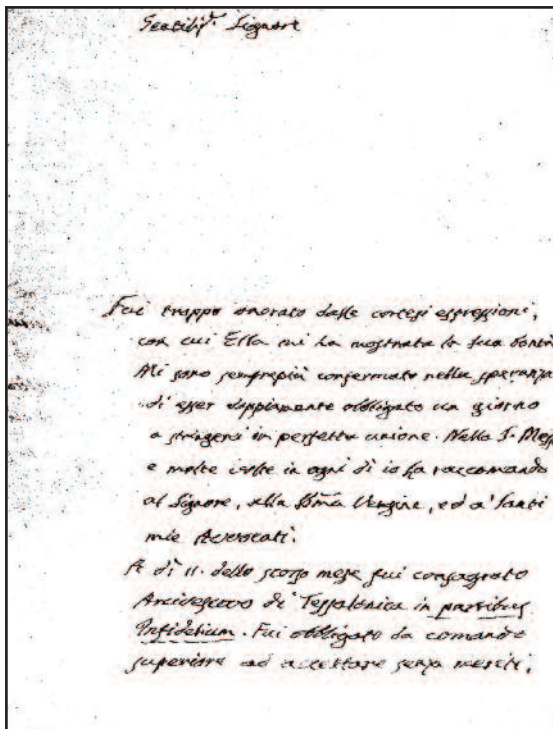 Gentilis.º Signore
Fui troppo onorato dalle cortesi espressioni,
con cui Ella mi ha mostrata la sua bontà
Mi sono semprepiù confermato nella speranza
di esser doppiamente obbligato un giorno
a stringersi in perfetta unione. Nella S. Mess
e molte volte in ogni dì io la raccomando
al Signore, alla Sſma Vergine, ed a' Santi
mie Avvocati.
A dì 11. dello scorso mese fui consagrato
Arcivescovo di Tessalonica in partibus
Infidelium. Fui obbligato da comando
superiore ad accettare senza meriti,